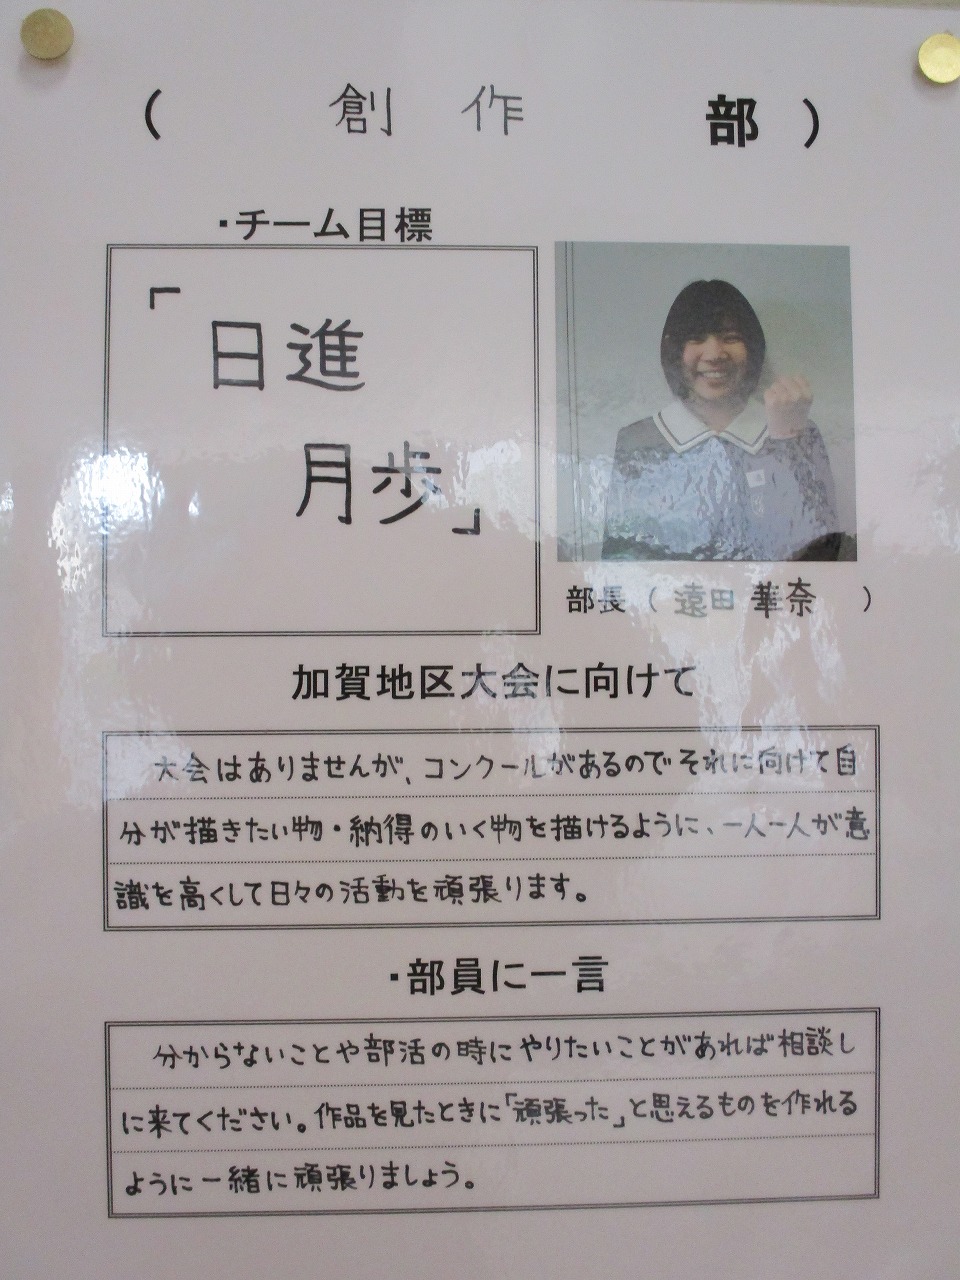 （ 創作 部 ）
・チーム目標
「日進
月歩」
部長（遠田 華奈 ）
加賀地区大会に向けて
大会はありませんが、コンクールがあるのでそれに向けて自
分が描きたい物・納得のいく物を描けるように、一人一人が意
識を高くして日々の活動を頑張ります。
・部員に一言
分からないことや部活の時にやりたいことがあれば相談し
に来てください。作品を見たときに「頑張った」と思えるものを作れる
ように一緒に頑張りましょう。